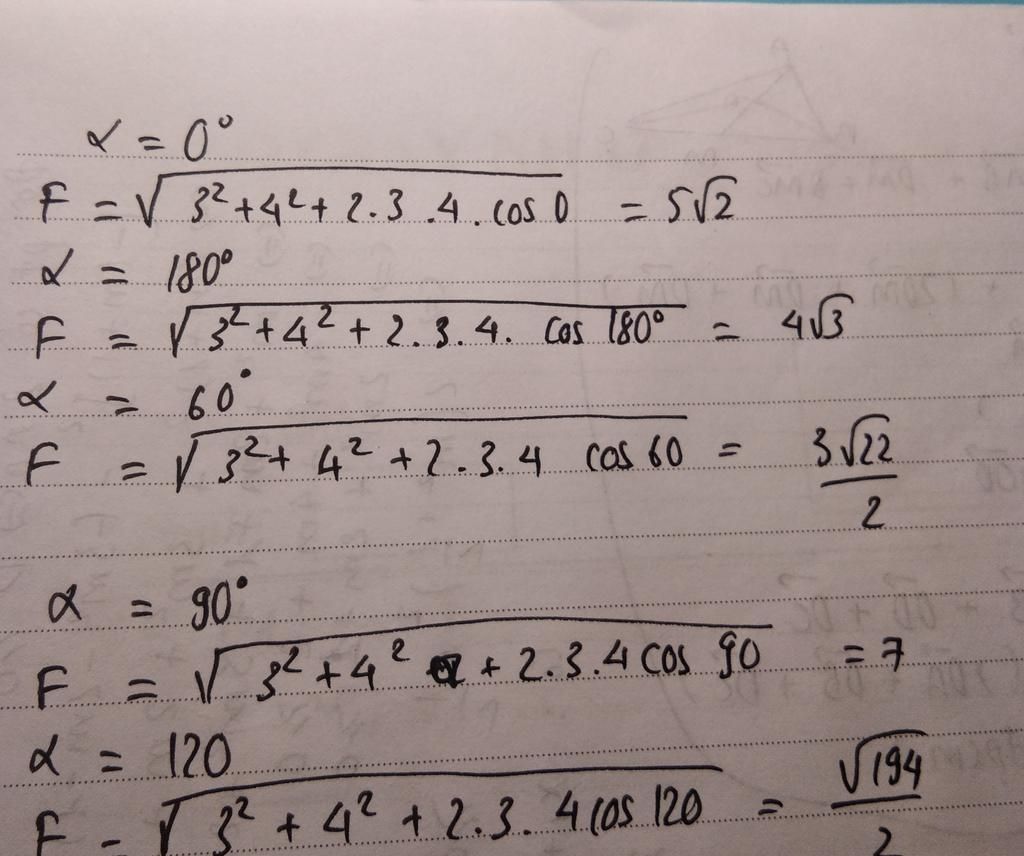 α = 0°
F = √3²+4²+2.3.4.cos 0 = 5√2
α = 180°
F = √3²+4²+2.3.4. cos 180° = 4√3
α = 60°
F = √3²+4²+2.3.4 cos 60 = 3√22/2
α = 90°
F = √3²+4² + 2.3.4 cos 90 = 7
α = 120
F = √3²+4²+2.3.4 cos 120 = √194/2